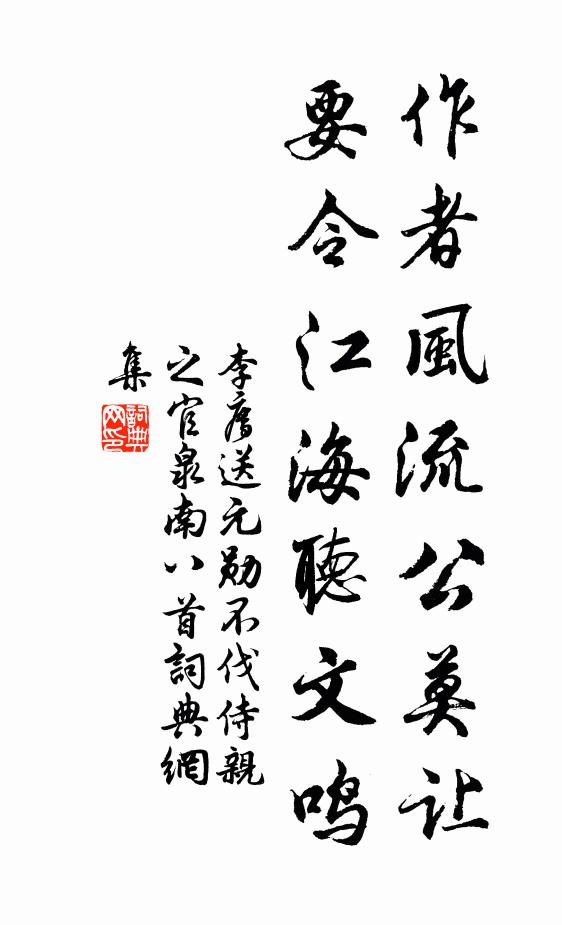 作者風流公莫让
要令江海聽文鸣
李廌送元勋不伐侍親
之官泉南八首詞典網
集
詞典網印